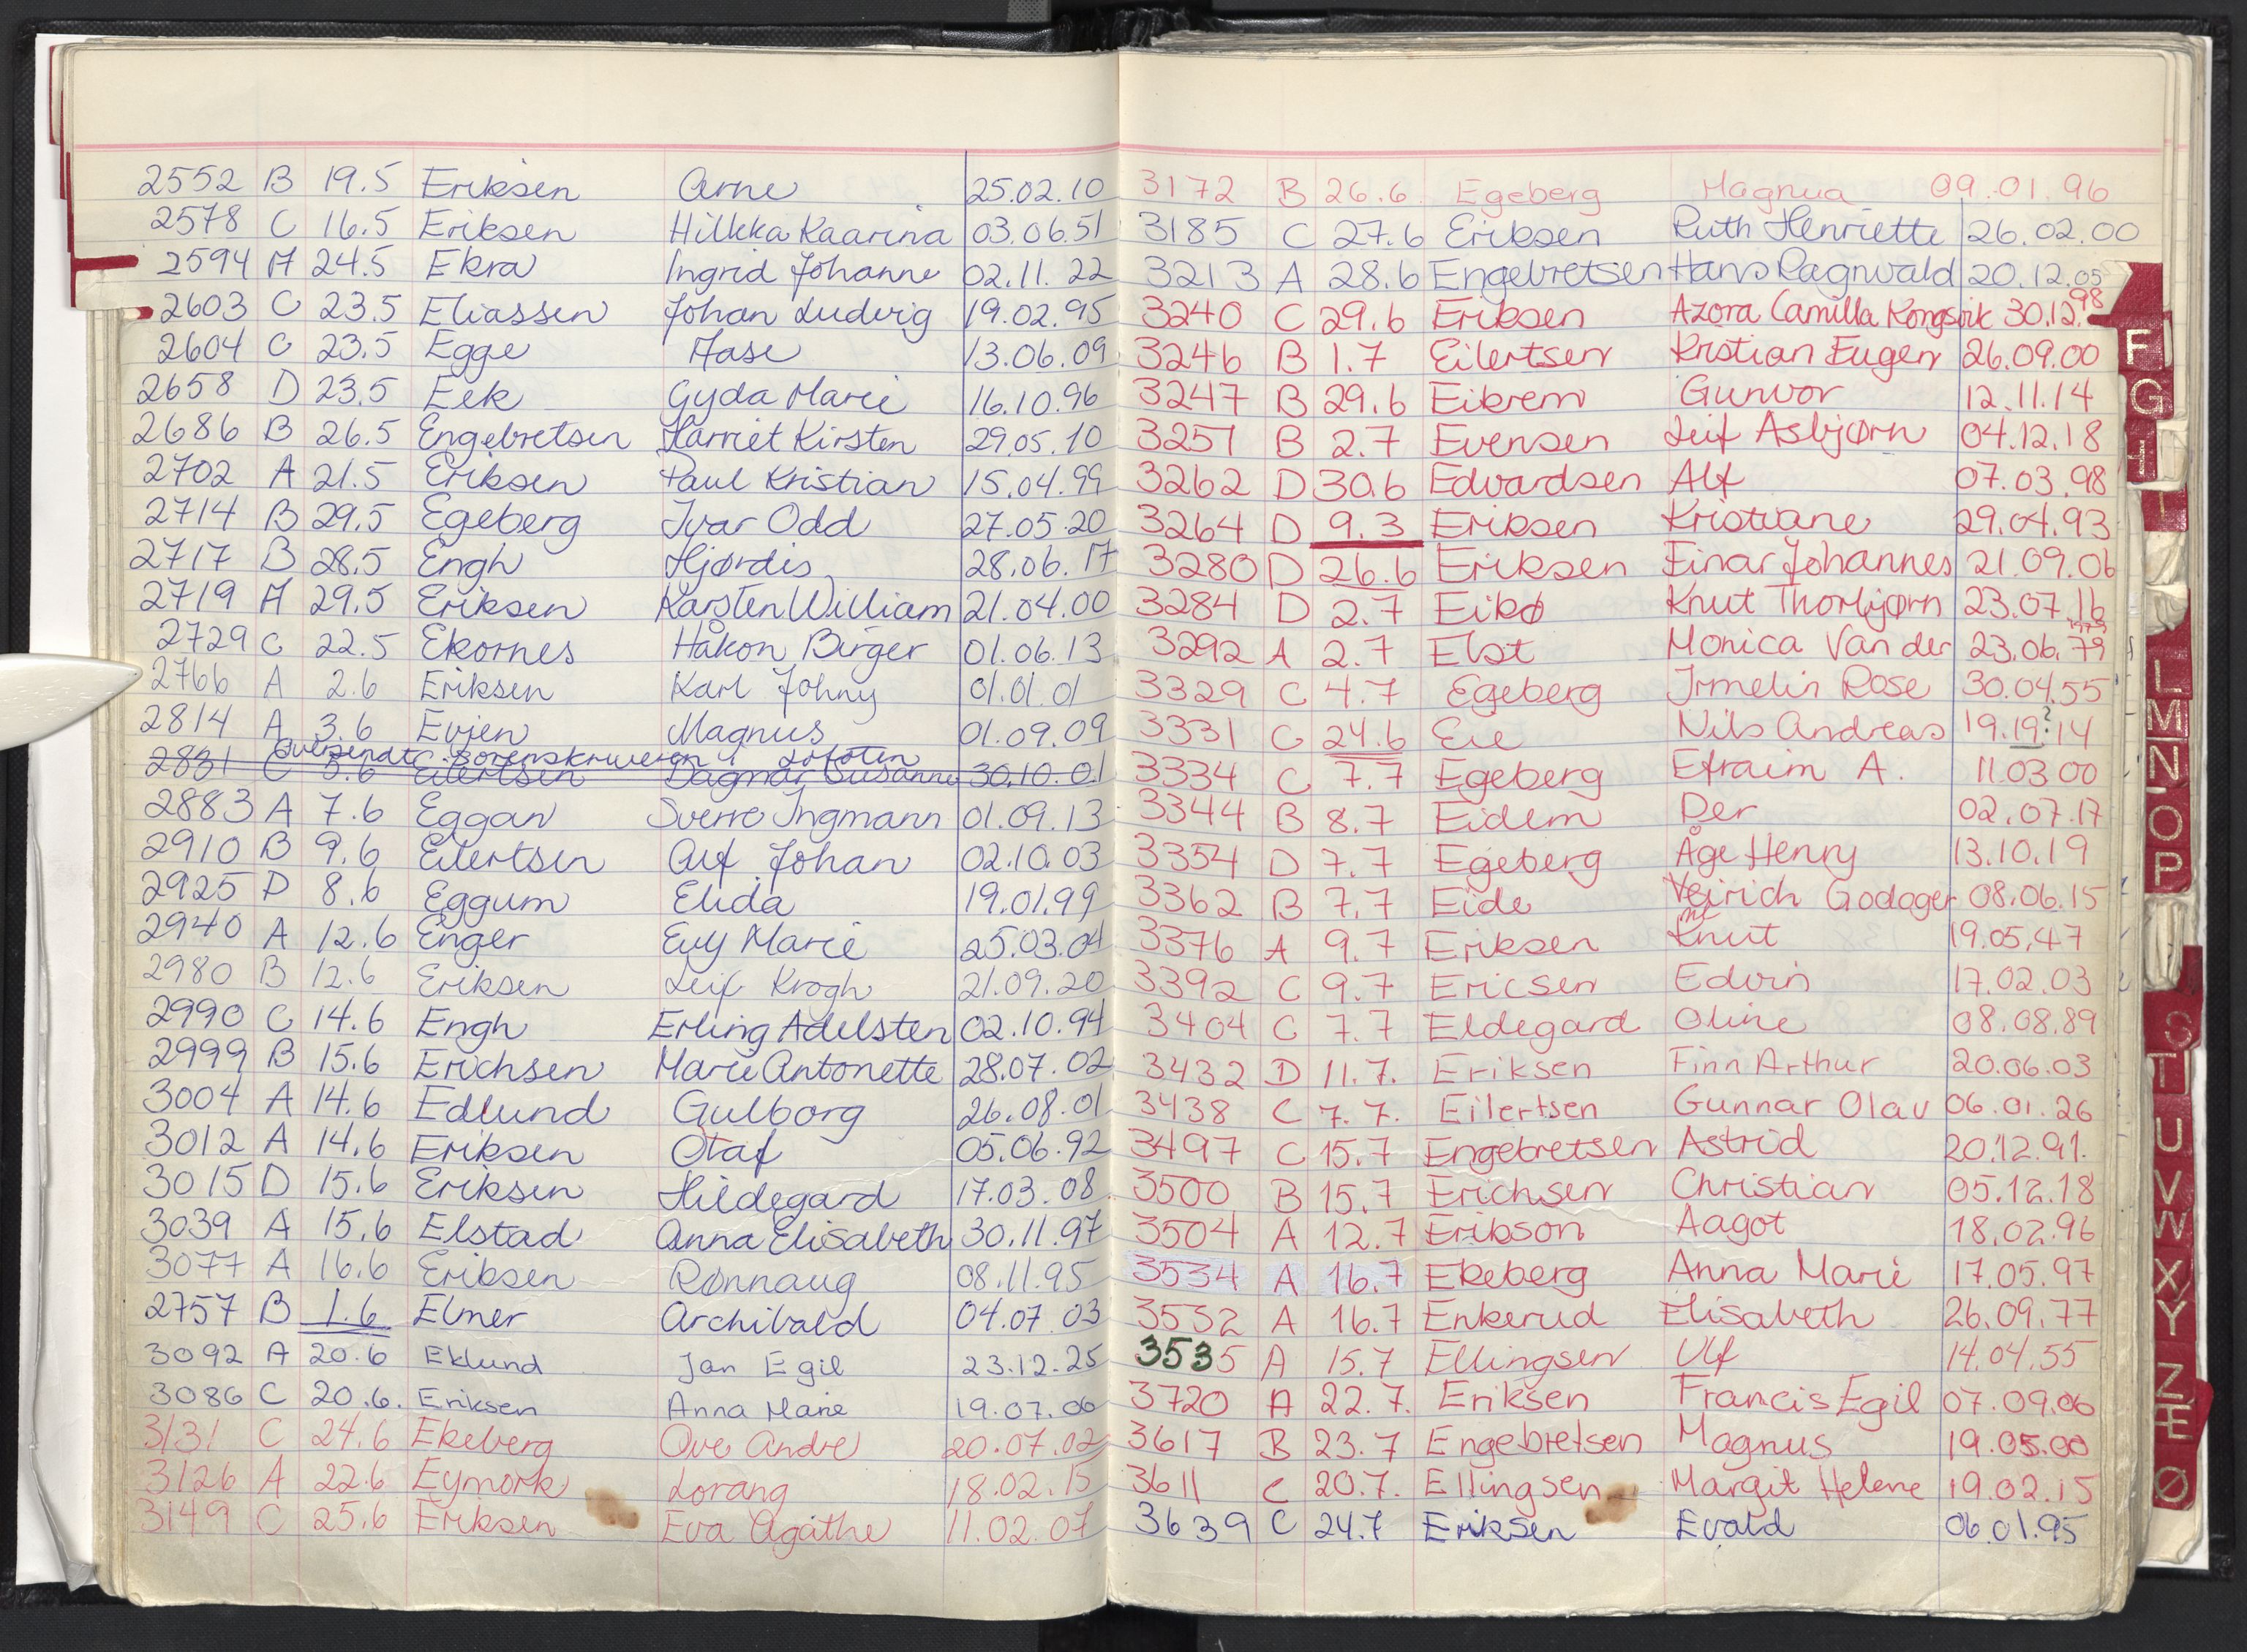 2552 B 19.5 Eriksen Arne 25.02.10
2578 C 16.5 Eriksen Hilkka Kaarina 03.06.51
2594 A 24.5 Ekra Ingrid Johanne 02.11.22
2603 C 23.5 Eliassen Johan Ludvig 19.02.95
2604 C 23.5 Egge Aase 13.06.09
2658 D 23.5 Eek Gyda Marie 16.10.96
2686 B 26.5 Engebretsen Harriet Kirsten 29.05.10
2702 A 21.5 Eriksen Paul Kristian 15.04.99
2714 B 29.5 Egeberg Ivar Odd 27.05.20
2717 B 28.5 Engh Hjørdis 28.06.17
2719 A 29.5 Eriksen Karsten William 21.04.00
2729 C 22.5 Ekornes Håkon Birger 01.06.13
2766 A 2.6 Eriksen Karl Johny 01.01.01
2814 A 3.6 Evjen Magnus 01.09.09
Oversendt Sorenskriveren i Lofoten
2831 C 5.6 Eilertsen Dagmar Susanne 30.10.01
2883 A 7.6 Eggan Sverre Ingmann 01.09.13
2910 B 9.6 Eilertsen Alf Johan 02.10.03
2925 D 8.6 Eggum Elida 19.01.99
2940 A 12.6 Enger Evy Marie 25.03.04
2980 B 12.6 Eriksen Leif Krogh 21.09.20
2990 C 14.6 Engh Erling Adelsten 02.10.94
2999 B 15.6 Erichsen Marie Antonette 28.07.02
3004 A 14.6 Edlund Gulborg 26.08.01
3012 A 14.6 Eriksen Olaf 05.06.92
3015 D 15.6 Eriksen Hildegard 17.03.08
3039 A 15.6 Elstad Anna Elisabeth 30.11.97
3077 A 16.6 Eriksen Rønnaug 08.11.95
2757 B 1.6 Elmer Archibald 04.07.03
3092 A 20.6 Eklund Jan Egil 23.12.25
3086 C 20.6. Eriksen Anna Marie 19.07.06
3131 C 24.6 Ekeberg Ove Andre 20.07.02
3126 A 22.6 Eymork Lorang 18.02.15
3149 C 25.6 Eriksen Eva Agathe 11.02.07
3172 B 26.6 Egeberg Magnus 09.01.96
3185 C 27.6 Eriksen Ruth Henriette 26.02.00
3213 A 28.6 Engebretsen Hans Ragnvald 20.12.05
3240 C 29.6 Eriksen Azora Camilla Kongsvik 30.12.98
3246 B 1.7 Eilertsen Kristian Eugen 26.09.00
3247 B 29.6 Eikrem Gunvor 12.11.14
3251 B 2.7 Evensen Leif Asbjørn 04.12.18
3262 D 30.6 Edvardsen Alf 07.03.98
3264 D 9.3 Eriksen Kristiane 29.04.93
3280 D 26.6 Eriksen Einar Johannes 21.09.06
3284 D 2.7 Eikø Knut Thorbjørn 23.07.16
3292 A 2.7 Elst Monica Van der 23.06.79 1979
3329 C 4.7 Egeberg Irmelin Rose 30.04.55
3331 C 24.6 Eie Nils Andreas 19.19?.14
3334 C 7.7 Egeberg Efraim A. 11.03.00
3344 B 8.7 Eidem Per 02.07.17
3354 D 7.7 Egeberg Åge Henry 13.10.19
3362 B 7.7 Eide Godager 08.06.15
3376 A 9.7 Eriksen Knut 19.05.47
3392 C 9.7 Ericsen Edvin 17.02.03
3404 C 7.7 Eldegard Oline 08.08.89
3432 D 11.7. Eriksen Finn Arthur 20.06.03
3438 C 7.7. Eilertsen Gunnar Olav 06.01.26
3497 C 15.7 Engebretsen Astrid 20.12.91.
3500 B 15.7 Erichsen Christian 05.12.18
3504 A 12.7 Erikson Aagot 18.02.96
3534 A 16.7 Ekeberg Anna Marie 17.05.97
3532 A 16.7 Enkerud Elisabeth 26.09.77
3535 A 15.7 Ellingsen Ulf 14.04.55
3720 A 22.7. Eriksen Francis Egil 07.09.06
3617 B 23.7 Engebretsen Magnus 19.05.00
3611 C 20.7. Ellingsen Margit Helene 19.02.15
3639 C 24.7 Eriksen Evald 06.01.95
F
G
H
I
L
M
N
O
P
S
T
U
V
W
X
Y
Z
Æ
Ø